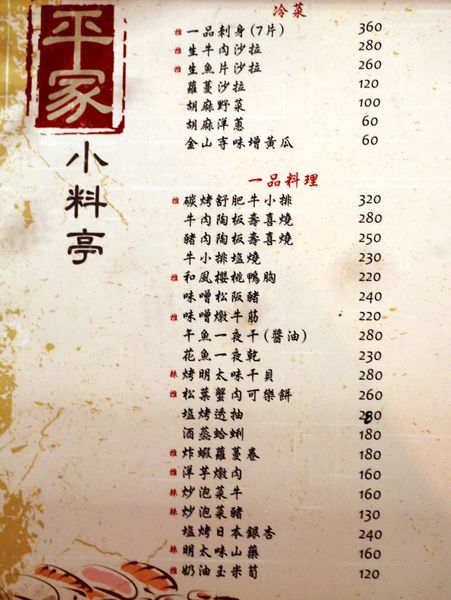 平家
小料亭
冷菜
推 一品刺身(7片) 360
推 生牛肉沙拉 280
推 生魚片沙拉 260
蘿蔓沙拉 120
胡麻野菜 100
胡麻洋蔥 60
金山寺味增黃瓜 60
一品料理
推 碳烤舒肥牛小排 320
牛肉陶板壽喜燒 280
豬肉陶板壽喜燒 250
牛小排塩燒 230
推 和風櫻桃鴨胸 220
味噌松阪豬 240
推 味噌燉牛筋 220
午魚一夜干(醬油) 280
花魚一夜乾 230
辣 烤明太味干貝 280
推 松葉蟹肉可樂餅 260
塩烤透抽
酒蒸蛤蜊 180
推 炸蝦蘿蔓卷 180
推 洋芋燉肉 160
辣 炒泡菜牛 160
辣 炒泡菜豬 130
塩烤日本銀杏 240
辣 明太味山藥 160
推 奶油玉米筍 120